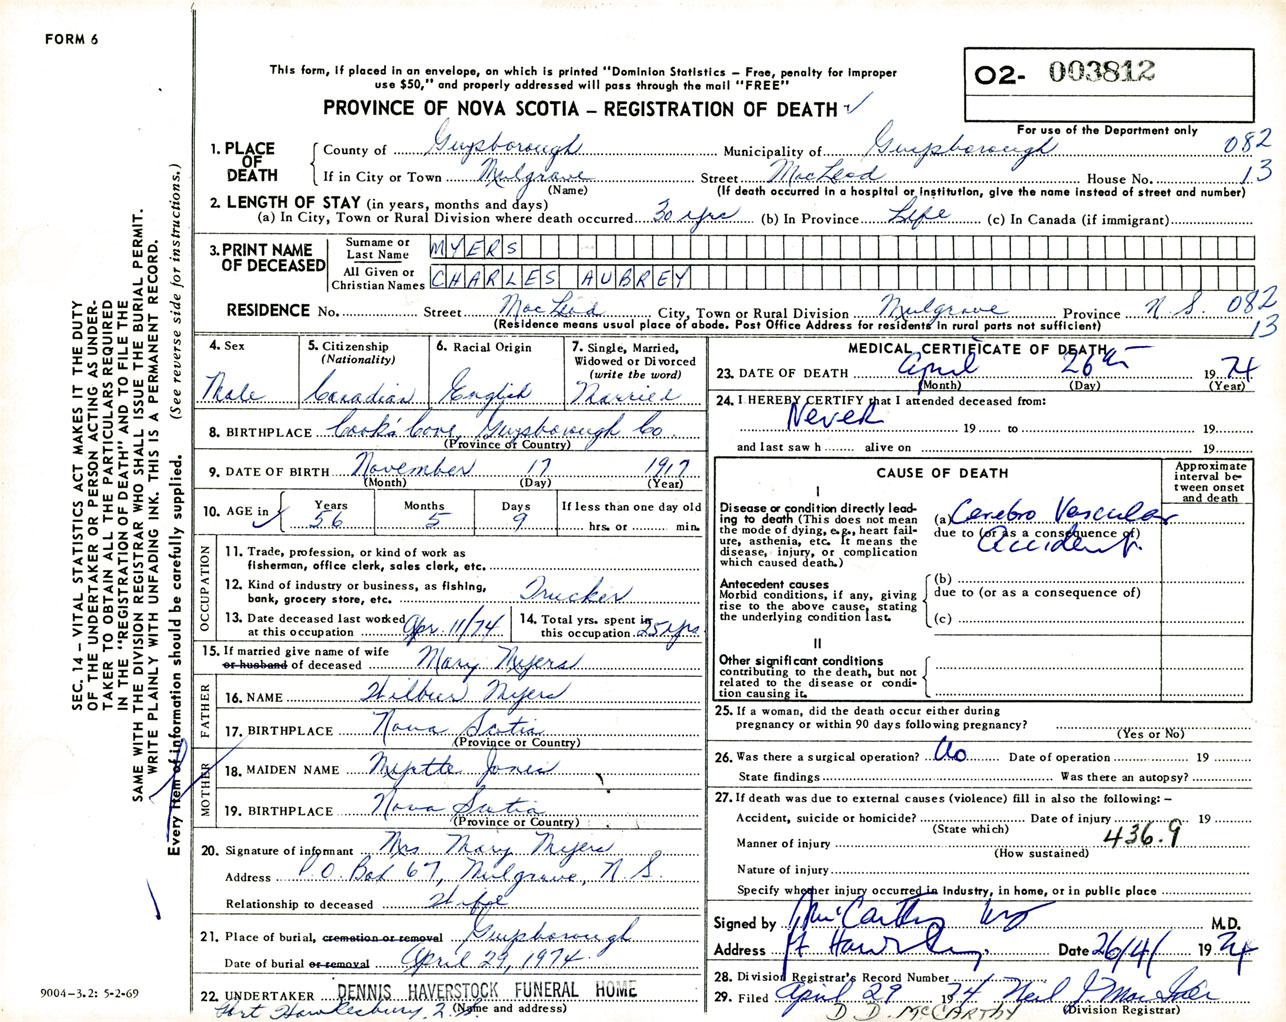 FORM 6
This form, if placed in an envelope, on which is printed "Dominion Statistics – Free, penalty for improper
use $50," and properly addressed will pass through the mail "FREE"
O2- 003812
PROVINCE OF NOVA SCOTIA – REGISTRATION OF DEATH
For use of the Department only
1. PLACE OF DEATH
County of Guysborough Municipality of Guysborough 082
If in City or Town Mulgrave Street MacLeod House No. 13
(Name) (If death occurred in a hospital or institution, give the name instead of street and number)
2. LENGTH OF STAY (in years, months and days)
(a) In City, Town or Rural Division where death occurred 30 yrs (b) In Province Life (c) In Canada (if immigrant)
3. PRINT NAME OF DECEASED
Surname or Last Name MYERS
All Given or Christian Names CHARLES AUBREY
RESIDENCE No. Street MacLeod City, Town or Rural Division Mulgrave Province N.S. 082
(Residence means usual place of abode. Post Office Address for residents in rural parts not sufficient) 13
4. Sex
Male
5. Citizenship
(Nationality)
Canadian
6. Racial Origin
English
7. Single, Married,
Widowed or Divorced
(write the word)
Married
8. BIRTHPLACE Cook's Cove, Guysborough Co.
(Province or Country)
9. DATE OF BIRTH November 17 1917
(Month) (Day) (Year)
10. AGE in Years Months Days If less than one day old
56 5 9 hrs. or min.
OCCUPATION
11. Trade, profession, or kind of work as
fisherman, office clerk, sales clerk, etc.
12. Kind of industry or business, as fishing,
bank, grocery store, etc. Trucker
13. Date deceased last worked
at this occupation Apr. 11/74
14. Total yrs. spent in
this occupation 25 yrs.
15. If married give name of wife
or husband of deceased Mary Myers
FATHER
16. NAME Wilbur Myers
17. BIRTHPLACE Nova Scotia
(Province or Country)
MOTHER
18. MAIDEN NAME Myrtle Jones
19. BIRTHPLACE Nova Scotia
(Province or Country)
20. Signature of informant Mrs Mary Myers
Address P.O. Box 67, Mulgrave, N.S.
Relationship to deceased Wife
21. Place of burial, cremation or removal Guysborough
Date of burial or removal April 29, 1974
22. UNDERTAKER DENNIS HAVERSTOCK FUNERAL HOME
Port Hawkesbury, N.S. (Name and address)
MEDICAL CERTIFICATE OF DEATH
23. DATE OF DEATH April 26th 1974
(Month) (Day) (Year)
24. I HEREBY CERTIFY that I attended deceased from:
Never 19 to 19
and last saw h alive on 19
CAUSE OF DEATH
Approximate
interval be-
tween onset
and death
I
Disease or condition directly lead-
ing to death (This does not mean
the mode of dying, e.g., heart fail-
ure, asthenia, etc. It means the
disease, injury, or complication
which caused death.)
(a) Cerebro Vascular
due to (or as a consequence of)
Accident.
Antecedent causes
Morbid conditions, if any, giving
rise to the above cause, stating
the underlying condition last.
(b)
due to (or as a consequence of)
(c)
II
Other significant conditions
contributing to the death, but not
related to the disease or condi-
tion causing it.
25. If a woman, did the death occur either during
pregnancy or within 90 days following pregnancy?
(Yes or No)
26. Was there a surgical operation? No Date of operation 19
State findings Was there an autopsy?
27. If death was due to external causes (violence) fill in also the following: –
Accident, suicide or homicide? Date of injury 19
(State which)
Manner of injury 436.9
(How sustained)
Nature of injury
Specify whether injury occurred in industry, in home, or in public place
Signed by McCarthy M.D.
Address Pt Hawksbury Date 26/4/ 1974
28. Division Registrar's Record Number
29. Filed April 29 1974 Neil J. MacIsaac
D. D. McCARTHY (Division Registrar)
SEC. 14 – VITAL STATISTICS ACT MAKES IT THE DUTY
OF THE UNDERTAKER OR PERSON ACTING AS UNDER-
TAKER TO OBTAIN ALL THE PARTICULARS REQUIRED
IN THE "REGISTRATION OF DEATH" AND TO FILE THE
SAME WITH THE DIVISION REGISTRAR WHO SHALL ISSUE THE BURIAL PERMIT.
WRITE PLAINLY WITH UNFADING INK. THIS IS A PERMANENT RECORD.
Every item of information should be carefully supplied. (See reverse side for instructions.)
9004-3.2: 5-2-69